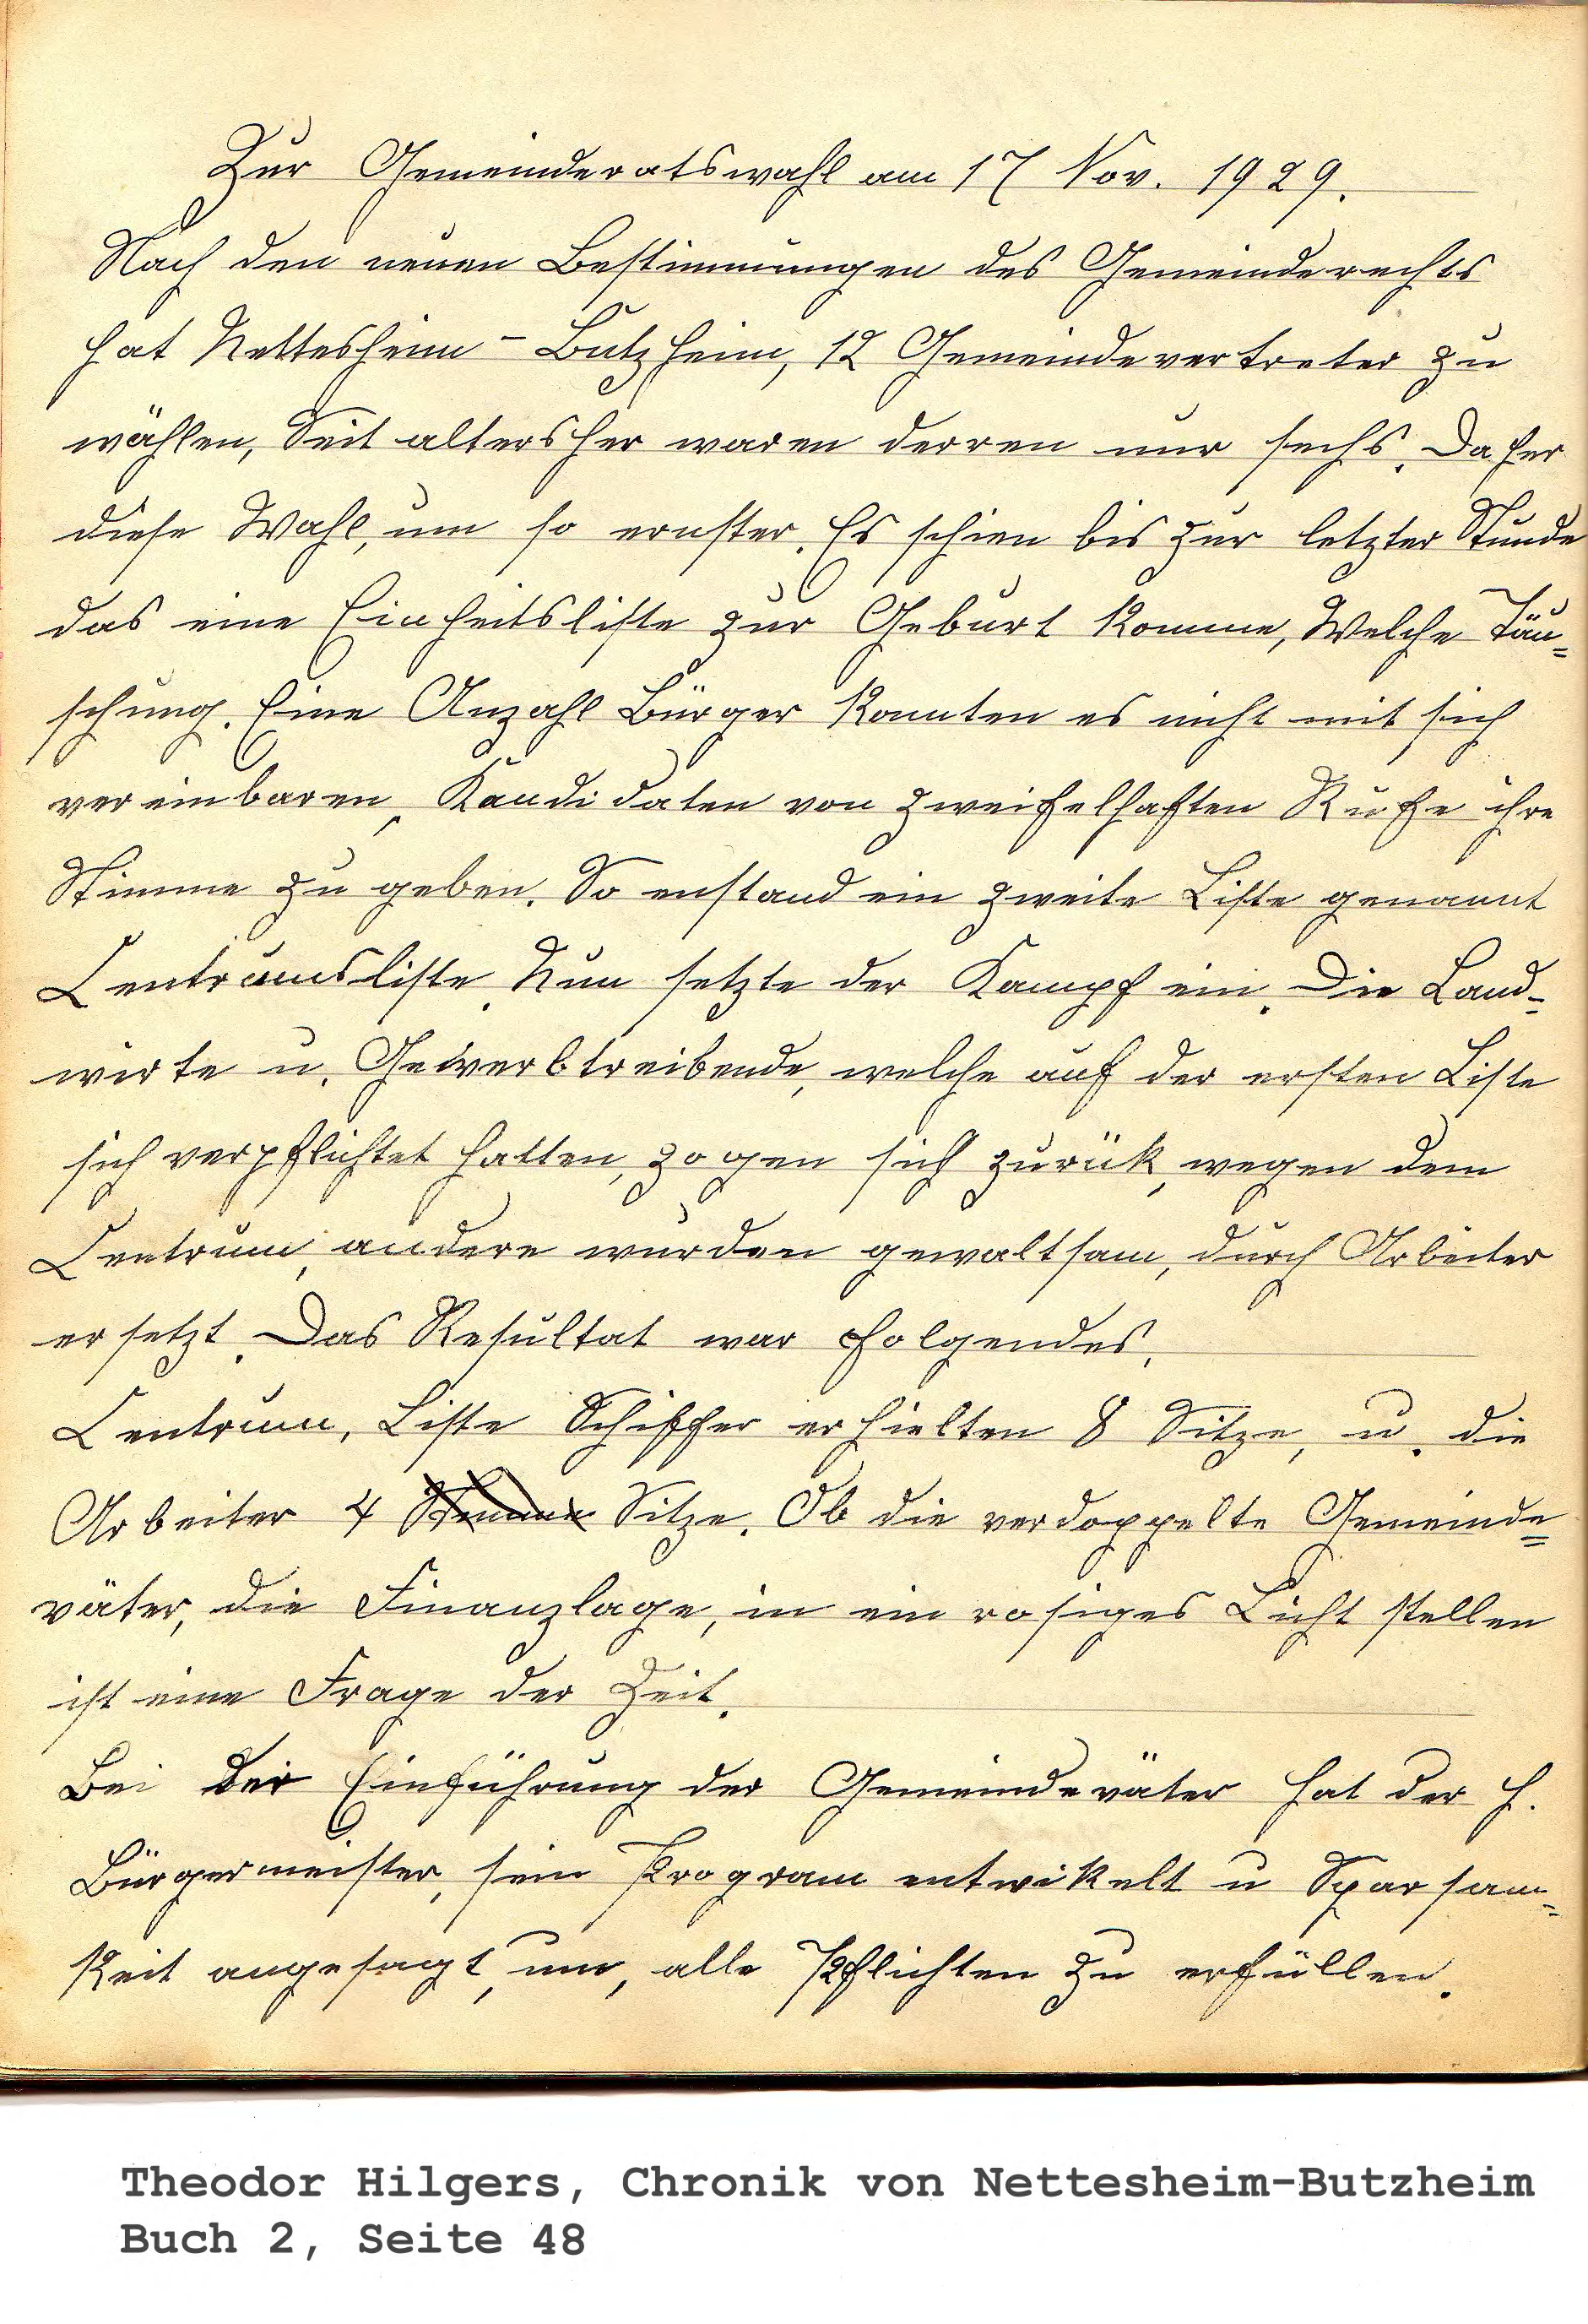 Zur Gemeinderatswahl am 17 Nov. 1929.
Nach den neuen Bestimmungen des Gemeinderechts
hat Nettesheim - Butzheim, 12 Gemeindevertreter zu
wählen, Seit altersher waren derren nur sechs. Daher
diese Wahl, um so ernster. Es schien bis zur letzter Stunde
das eine Einheitsliste zur Geburt komme, Welche Täu=
schung. Eine Anzahl Bürger konnten es nicht mit sich
vereinbaren, Kandidaten von zweifelhaften Rufe ihre
Stimme zu geben. So enstand ein zweite Liste genannt
Centrumsliste. Nun setzte der Kampf ein. Die Land=
wirte u. Gewerbtreibende, welche auf der ersten Liste
sich verpflichtet hatten, zogen sich zurük, wegen dem
Centrum, andere wurden gewaltsam, durch Arbeiter
ersetzt. Das Resultat war folgendes.
Centrum, Liste Schiffer erhielten 8 Sitze, u. die
Arbeiter 4 Stimme Sitze. Ob die verdoppelte Gemeinde=
väter, die Finanzlage, in ein rosiges Licht stellen
ist eine Frage der Zeit.
Bei der Einführung der Gemeindeväter hat der H.
Bürgermeister, sein Program entwikelt u Sparsam=
keit angesagt, um, alle Pflichten zu erfüllen.
Theodor Hilgers, Chronik von Nettesheim-Butzheim
Buch 2, Seite 48